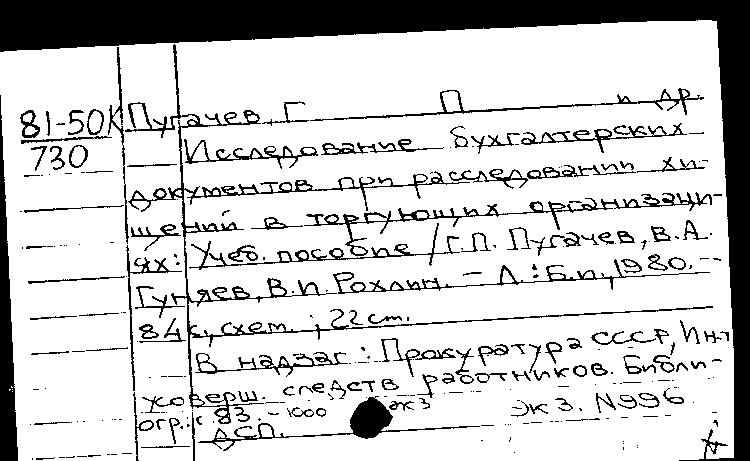 81-50К Пугачев, Г П и др.
730 Исследование бухгалтерских
документов при расследовании хи-
щений в торгующих организаци-
ях: Учеб. пособие / Г.П. Пугачев, В.А.
Гуняев, В.И. Рохлин. - Л.: Б.и., 1980. --
84 с., схем.; 22 cm.
В надзаг: Прокуратура СССР, Ин-т
усоверш. следств работников. Библи-
огр.: с 83. - 1000 экз Экз. N996
ДСП.